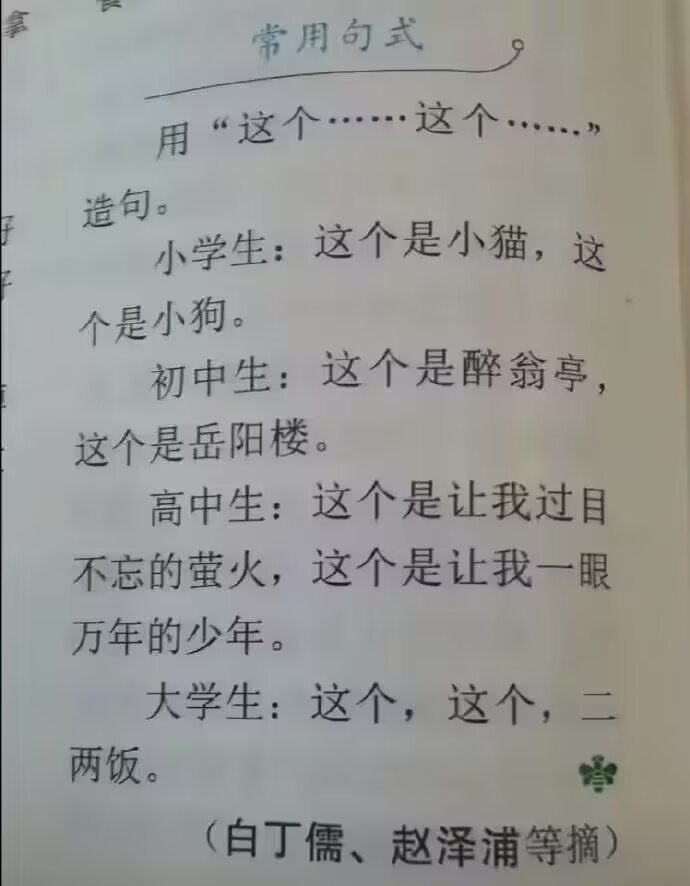 拿
常用句式
用“这个……这个……”
造句。
小学生：这个是小猫，这
个是小狗。
初中生：这个是醉翁亭，
这个是岳阳楼。
高中生：这个是让我过目
不忘的萤火，这个是让我一眼
万年的少年。
大学生：这个，这个，二
两饭。
（白丁儒、赵泽浦等摘）